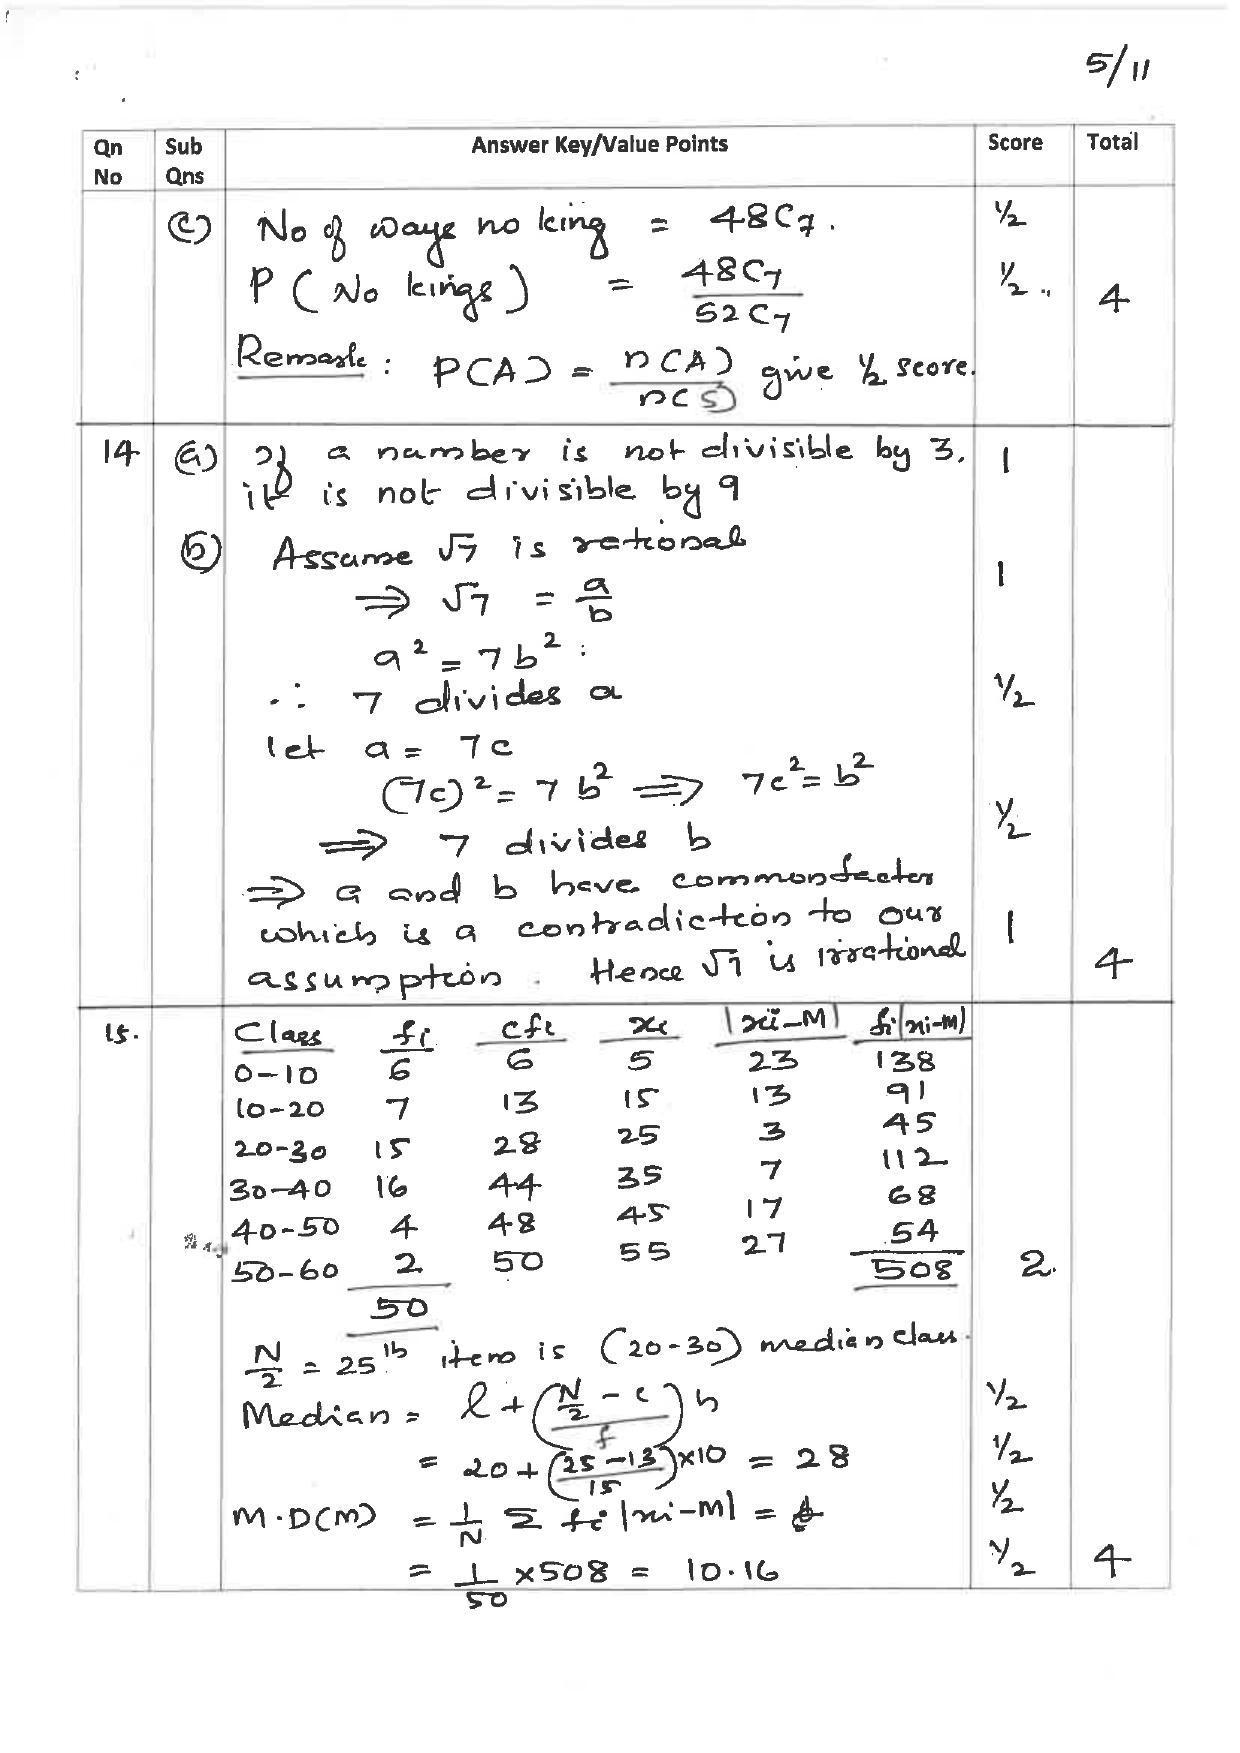 5/11
Qn No Sub Qns Answer Key/Value Points Score Total
(c) No of ways no king = 48C7. ½
P (No kings) = 48C7 / 52C7 ½ 4
Remark: P(A) = n(A) / n(S) give ½ score.
14 (a) If a number is not divisible by 3, 1
it is not divisible by 9
(b) Assume √7 is rational
⇒ √7 = a/b 1
a² = 7b²
∴ 7 divides a ½
let a = 7c
(7c)² = 7b² ⇒ 7c² = b²
⇒ 7 divides b ½
⇒ a and b have common factor
which is a contradiction to our 1
assumption. Hence √7 is irrational 4
15. Class fi cfi xi |xi-M| fi|xi-M|
0-10 6 6 5 23 138
10-20 7 13 15 13 91
20-30 15 28 25 3 45
30-40 16 44 35 7 112
40-50 4 48 45 17 68
50-60 2 50 55 27 54
50 508 2.
N/2 = 25th item is (20-30) median class.
Median = l + ((N/2 - c)/f) h ½
= 20 + ((25-13)/15) × 10 = 28 ½
M.D(M) = 1/N Σ fi |xi-M| = ½
= 1/50 × 508 = 10.16 ½ 4